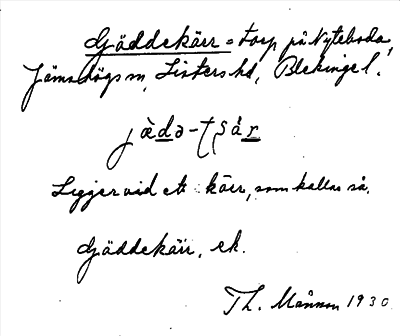 Gäddekärr = torp på Nyteboda,
Jämshögs sn, Listers hd, Blekinge l.
jæ̀də-tʃår
Ligger vid ett kärr, som kallas så.
Gäddekärr, ek.
Th. Månsson 1930